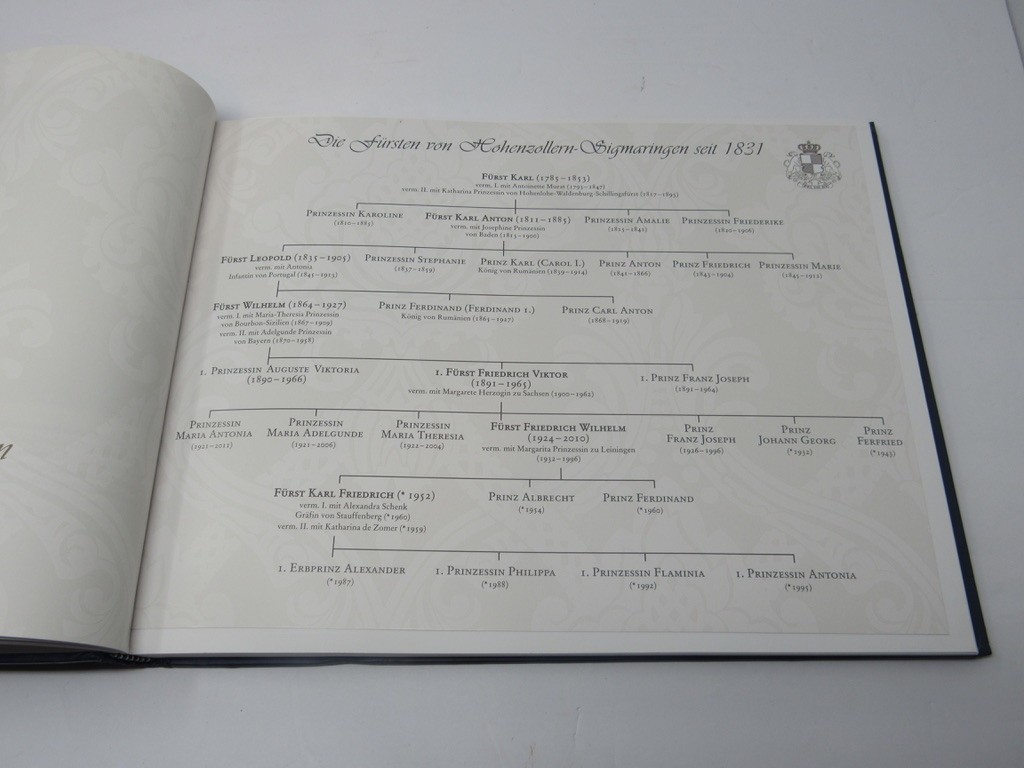 Die Fürsten von Hohenzollern-Sigmaringen seit 1831
Fürst Karl (1785–1853)
verm. I. mit Antoinette Murat (1793–1847)
verm. II. mit Katharina Prinzessin von Hohenlohe-Waldenburg-Schillingsfürst (1817–1893)
Prinzessin Karoline
(1810–1885)
Fürst Karl Anton (1811–1885)
verm. mit Josephine Prinzessin
von Baden (1813–1900)
Prinzessin Amalie
(1815–1841)
Prinzessin Friederike
(1820–1906)
Fürst Leopold (1835–1905)
verm. mit Antonia
Infantin von Portugal (1845–1913)
Prinzessin Stephanie
(1837–1859)
Prinz Karl (Carol I.)
König von Rumänien (1839–1914)
Prinz Anton
(1841–1866)
Prinz Friedrich
(1843–1904)
Prinzessin Marie
(1845–1912)
Fürst Wilhelm (1864–1927)
verm. I. mit Maria-Theresia Prinzessin
von Bourbon-Sizilien (1867–1909)
verm. II. mit Adelgunde Prinzessin
von Bayern (1870–1958)
Prinz Ferdinand (Ferdinand I.)
König von Rumänien (1865–1927)
Prinz Carl Anton
(1868–1919)
1. Prinzessin Auguste Viktoria
(1890–1966)
1. Fürst Friedrich Viktor
(1891–1965)
verm. mit Margarete Herzogin zu Sachsen (1900–1962)
1. Prinz Franz Joseph
(1891–1964)
Prinzessin
Maria Antonia
(1921–2011)
Prinzessin
Maria Adelgunde
(1921–2006)
Prinzessin
Maria Theresia
(1922–2004)
Fürst Friedrich Wilhelm
(1924–2010)
verm. mit Margarita Prinzessin zu Leiningen
(1932–1996)
Prinz
Franz Joseph
(1926–1996)
Prinz
Johann Georg
(*1932)
Prinz
Ferfried
(*1943)
Fürst Karl Friedrich (*1952)
verm. I. mit Alexandra Schenk
Gräfin von Stauffenberg (*1960)
verm. II. mit Katharina de Zomer (*1959)
Prinz Albrecht
(*1954)
Prinz Ferdinand
(*1960)
1. Erbprinz Alexander
(*1987)
1. Prinzessin Philippa
(*1988)
1. Prinzessin Flaminia
(*1992)
1. Prinzessin Antonia
(*1995)